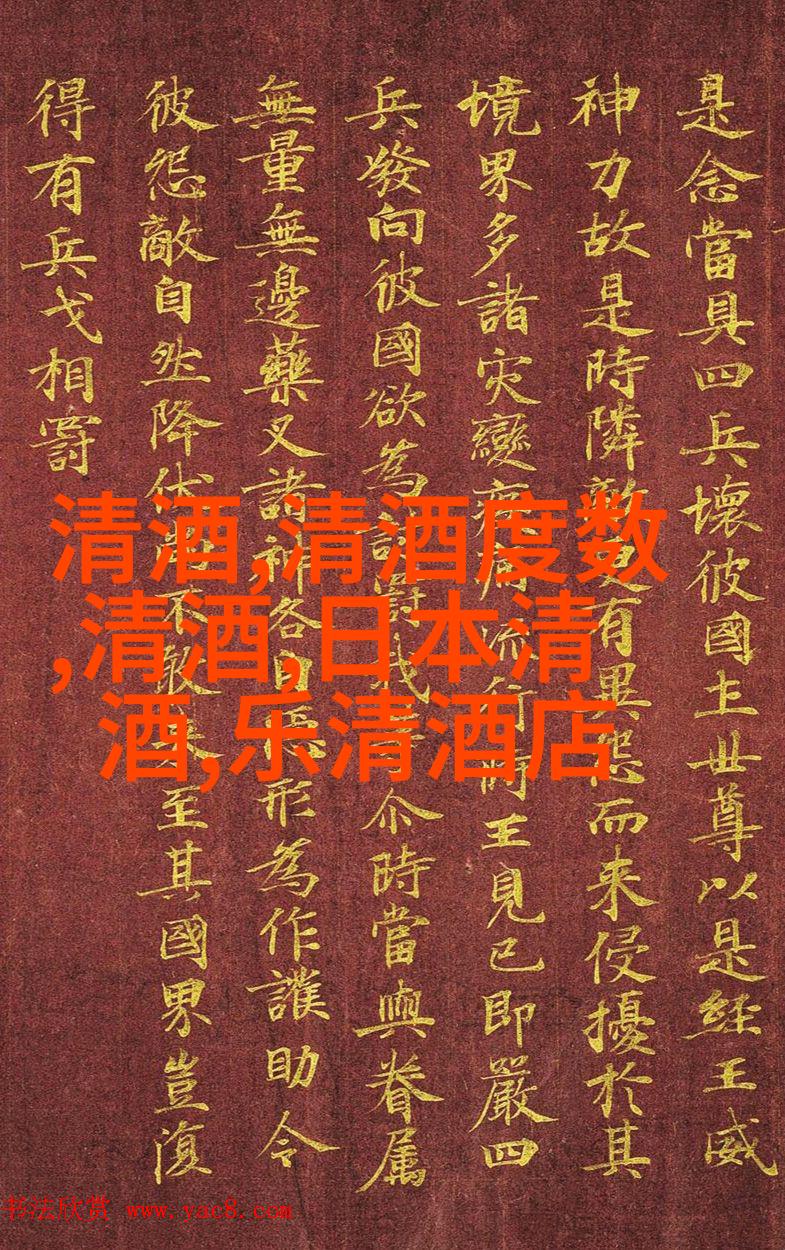 是念當具四兵壞彼國土世尊以是經王威
神力故是時隣敵更有異怨而来侵擾於其
境界多諸灾變疫病流行時王見已即嚴四
兵發向彼國欲為討罸我等尒時當與眷属
無量無邊藥叉諸神各自隱形為作護助令
彼怨敵自然降伏尚不敢来至其國界豈復
得有兵戈相罸
清酒,清酒度数
,清酒,日本清
酒,乐清酒店
书法欣赏 www.yac8.com